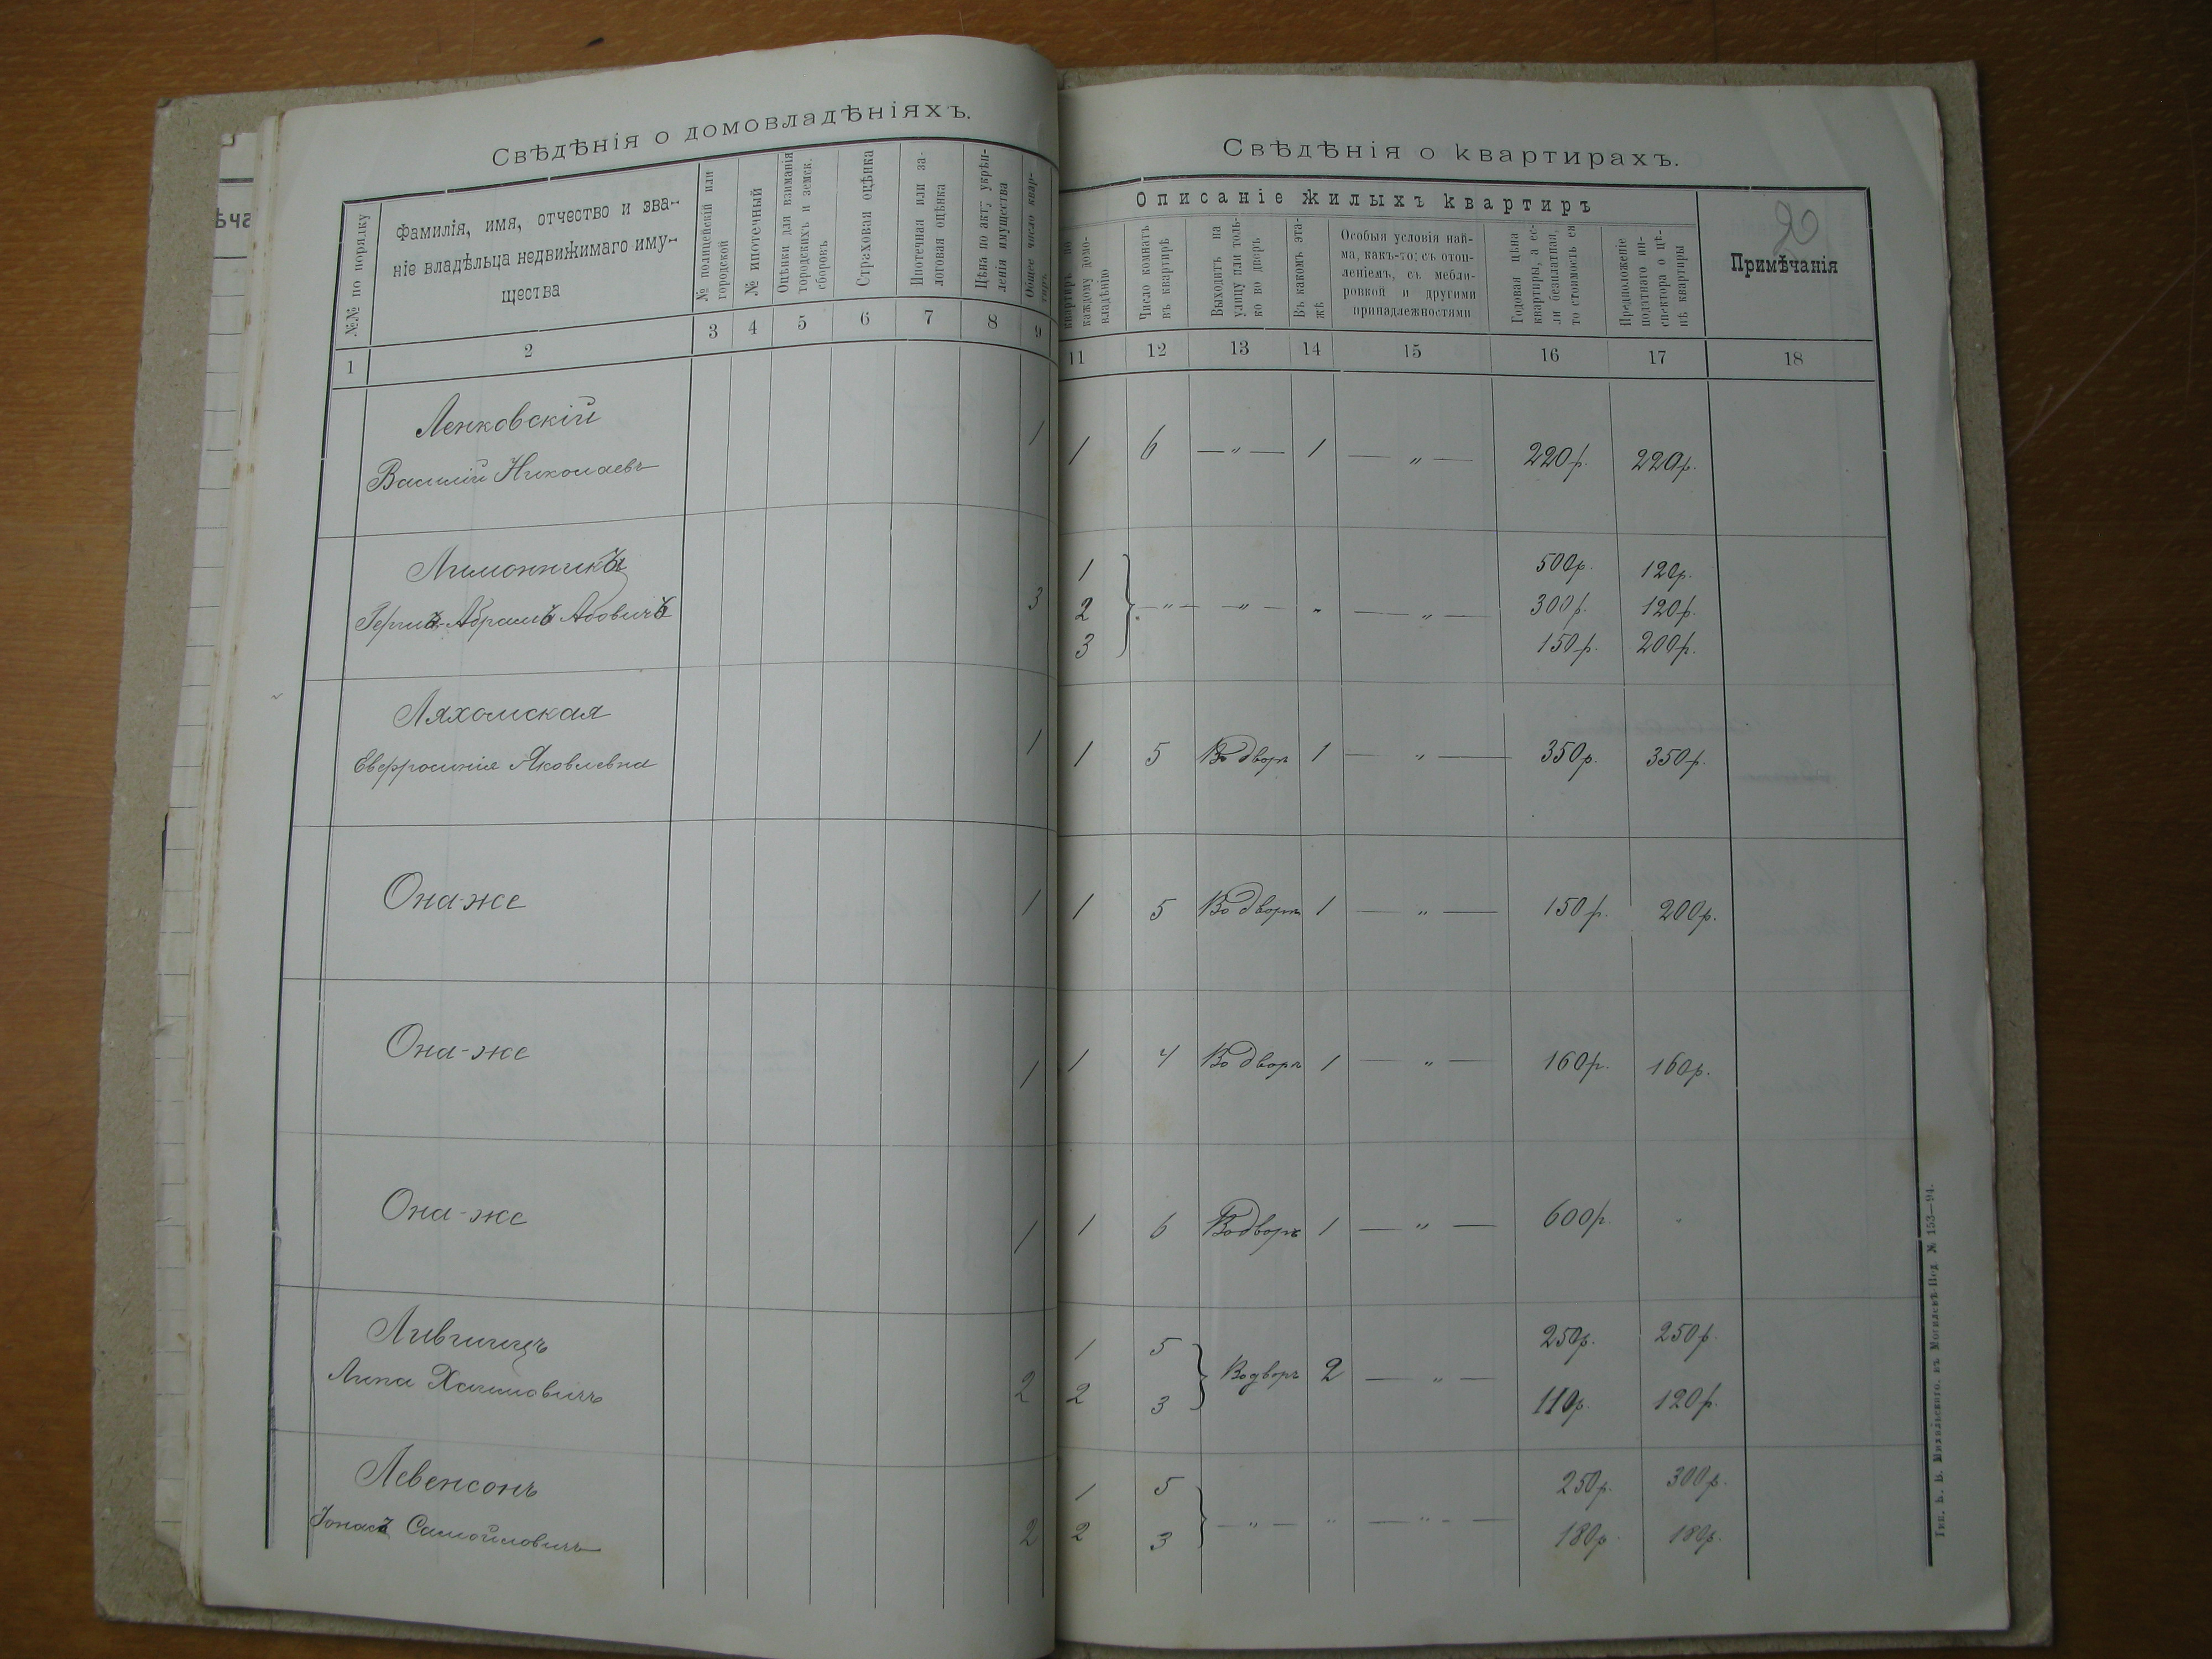 Свѣдѣнія о домовладѣніяхъ.
№№ по порядку
Фамилія, имя, отчество и зва-
ніе владѣльца недвижимаго иму-
щества
№ полицейскій или
городской
№ ипотечный
Оцѣнки для взиманія
городскихъ и земск.
сборовъ
Страховая оцѣнка
Ипотечная или за-
логовая оцѣнка
Цѣна по акт. укрѣп-
ленія имущества
Общее число квар-
тиръ
1 2 3 4 5 6 7 8 9
Ленковскій
Василій Николаевъ
1
Лимонникъ
Абрамъ
3
Ляхомская
Евфросинія Яковлевна
1
Она-же
1
Она-же
1
Она-же
1
Лившицъ
Липа Хаимовичъ
2
Левенсонъ
Іонасъ Самойловичъ
2
ѣча
Свѣдѣнія о квартирахъ.
Описаніе жилыхъ квартиръ
квартиръ по
каждому домо-
владѣнію
Число комнатъ
въ квартирѣ
Выходитъ на
улицу или толь-
ко во дворъ
Въ какомъ эта-
жѣ
Особыя условія най-
ма, какъ-то: съ отоп-
леніемъ, съ мебли-
ровкой и другими
принадлежностями
Годовая цѣна
квартиры, а ес-
ли безплатная,
то стоимость ея
Предположеніе
податнаго ин-
спектора о цѣ-
нѣ квартиры
Примѣчанія
20
11 12 13 14 15 16 17 18
1 6 — „ — 1 — „ — 220р. 220р.
1 500р. 120р.
2 — „ — — „ — „ — „ — 300р. 120р.
3 150р. 200р.
1 5 Во дворъ 1 — „ — 350р. 350р.
1 5 Во дворъ 1 — „ — 150р. 200р.
1 4 Во дворъ 1 — „ — 160р. 160р.
1 6 Во дворъ 1 — „ — 600р. „
1 5 250р. 250р.
Во дворъ 2 — „ —
2 3 110р. 120р.
1 5 250р. 300р.
— „ — „ — „ —
2 3 180р. 180р.
№ 153—94.